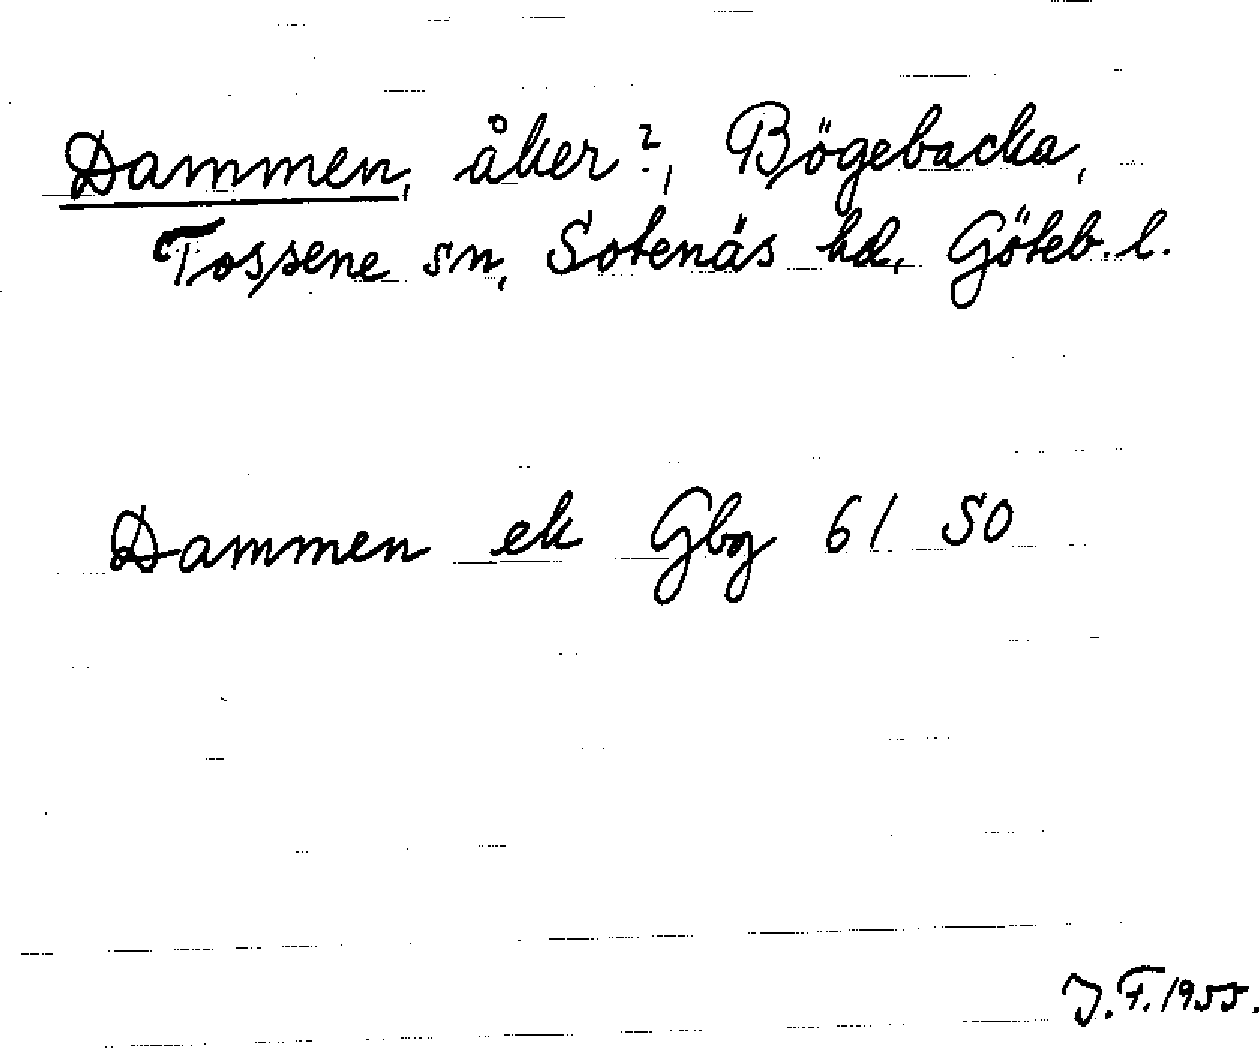 Dammen, åker?, Bögebacka,
Tossene sn, Sotenäs hd, Göteb. l.
Dammen ek Gbg 61 50
J.F. 1955.